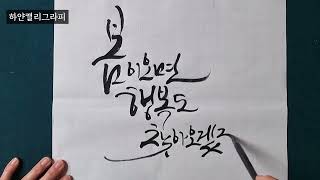 하얀캘리그라피
봄이오면
행복도
찾아오겠